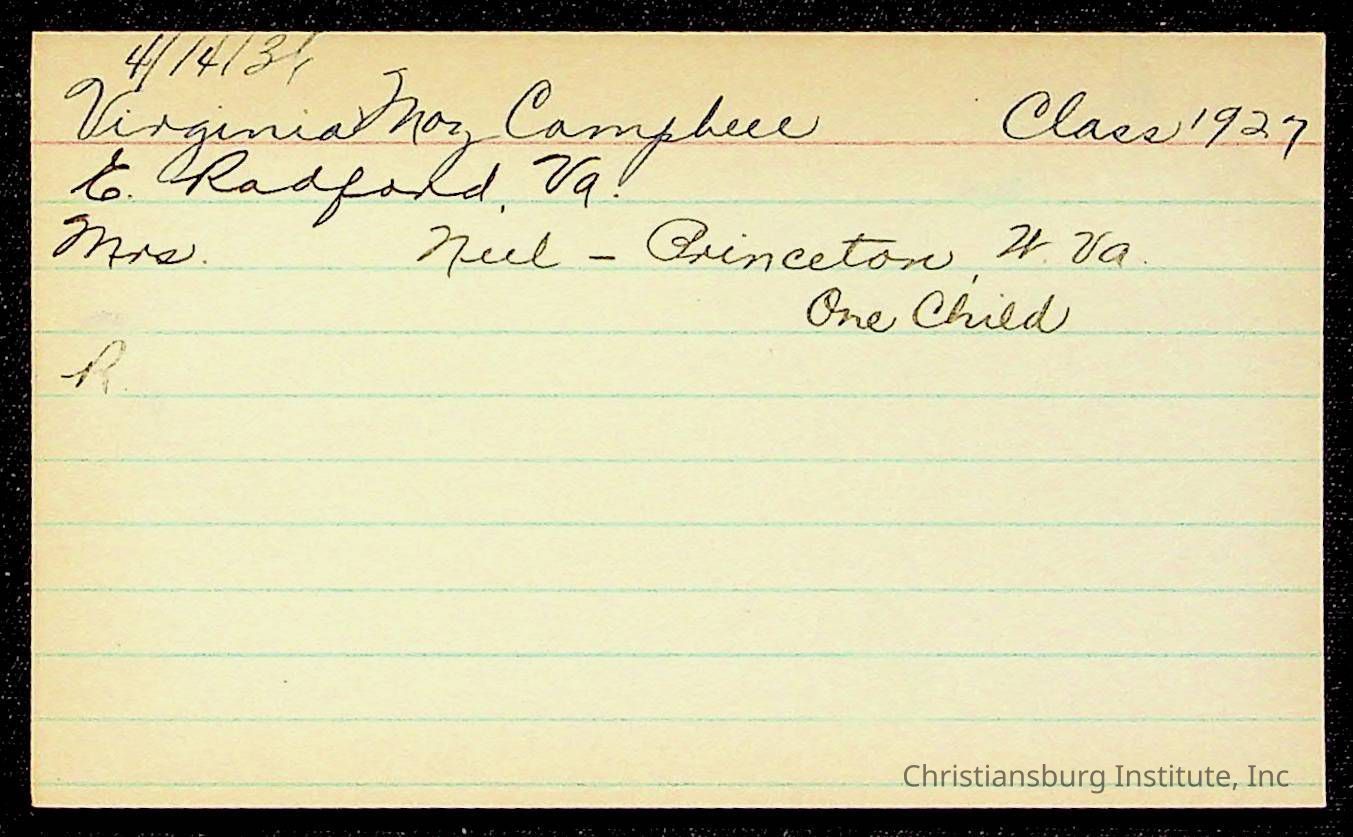 Virginia May Campbell Class 1927
E. Radford, Va.
Mrs. Neel - Princeton, W. Va.
One Child
R.
Christiansburg Institute, Inc